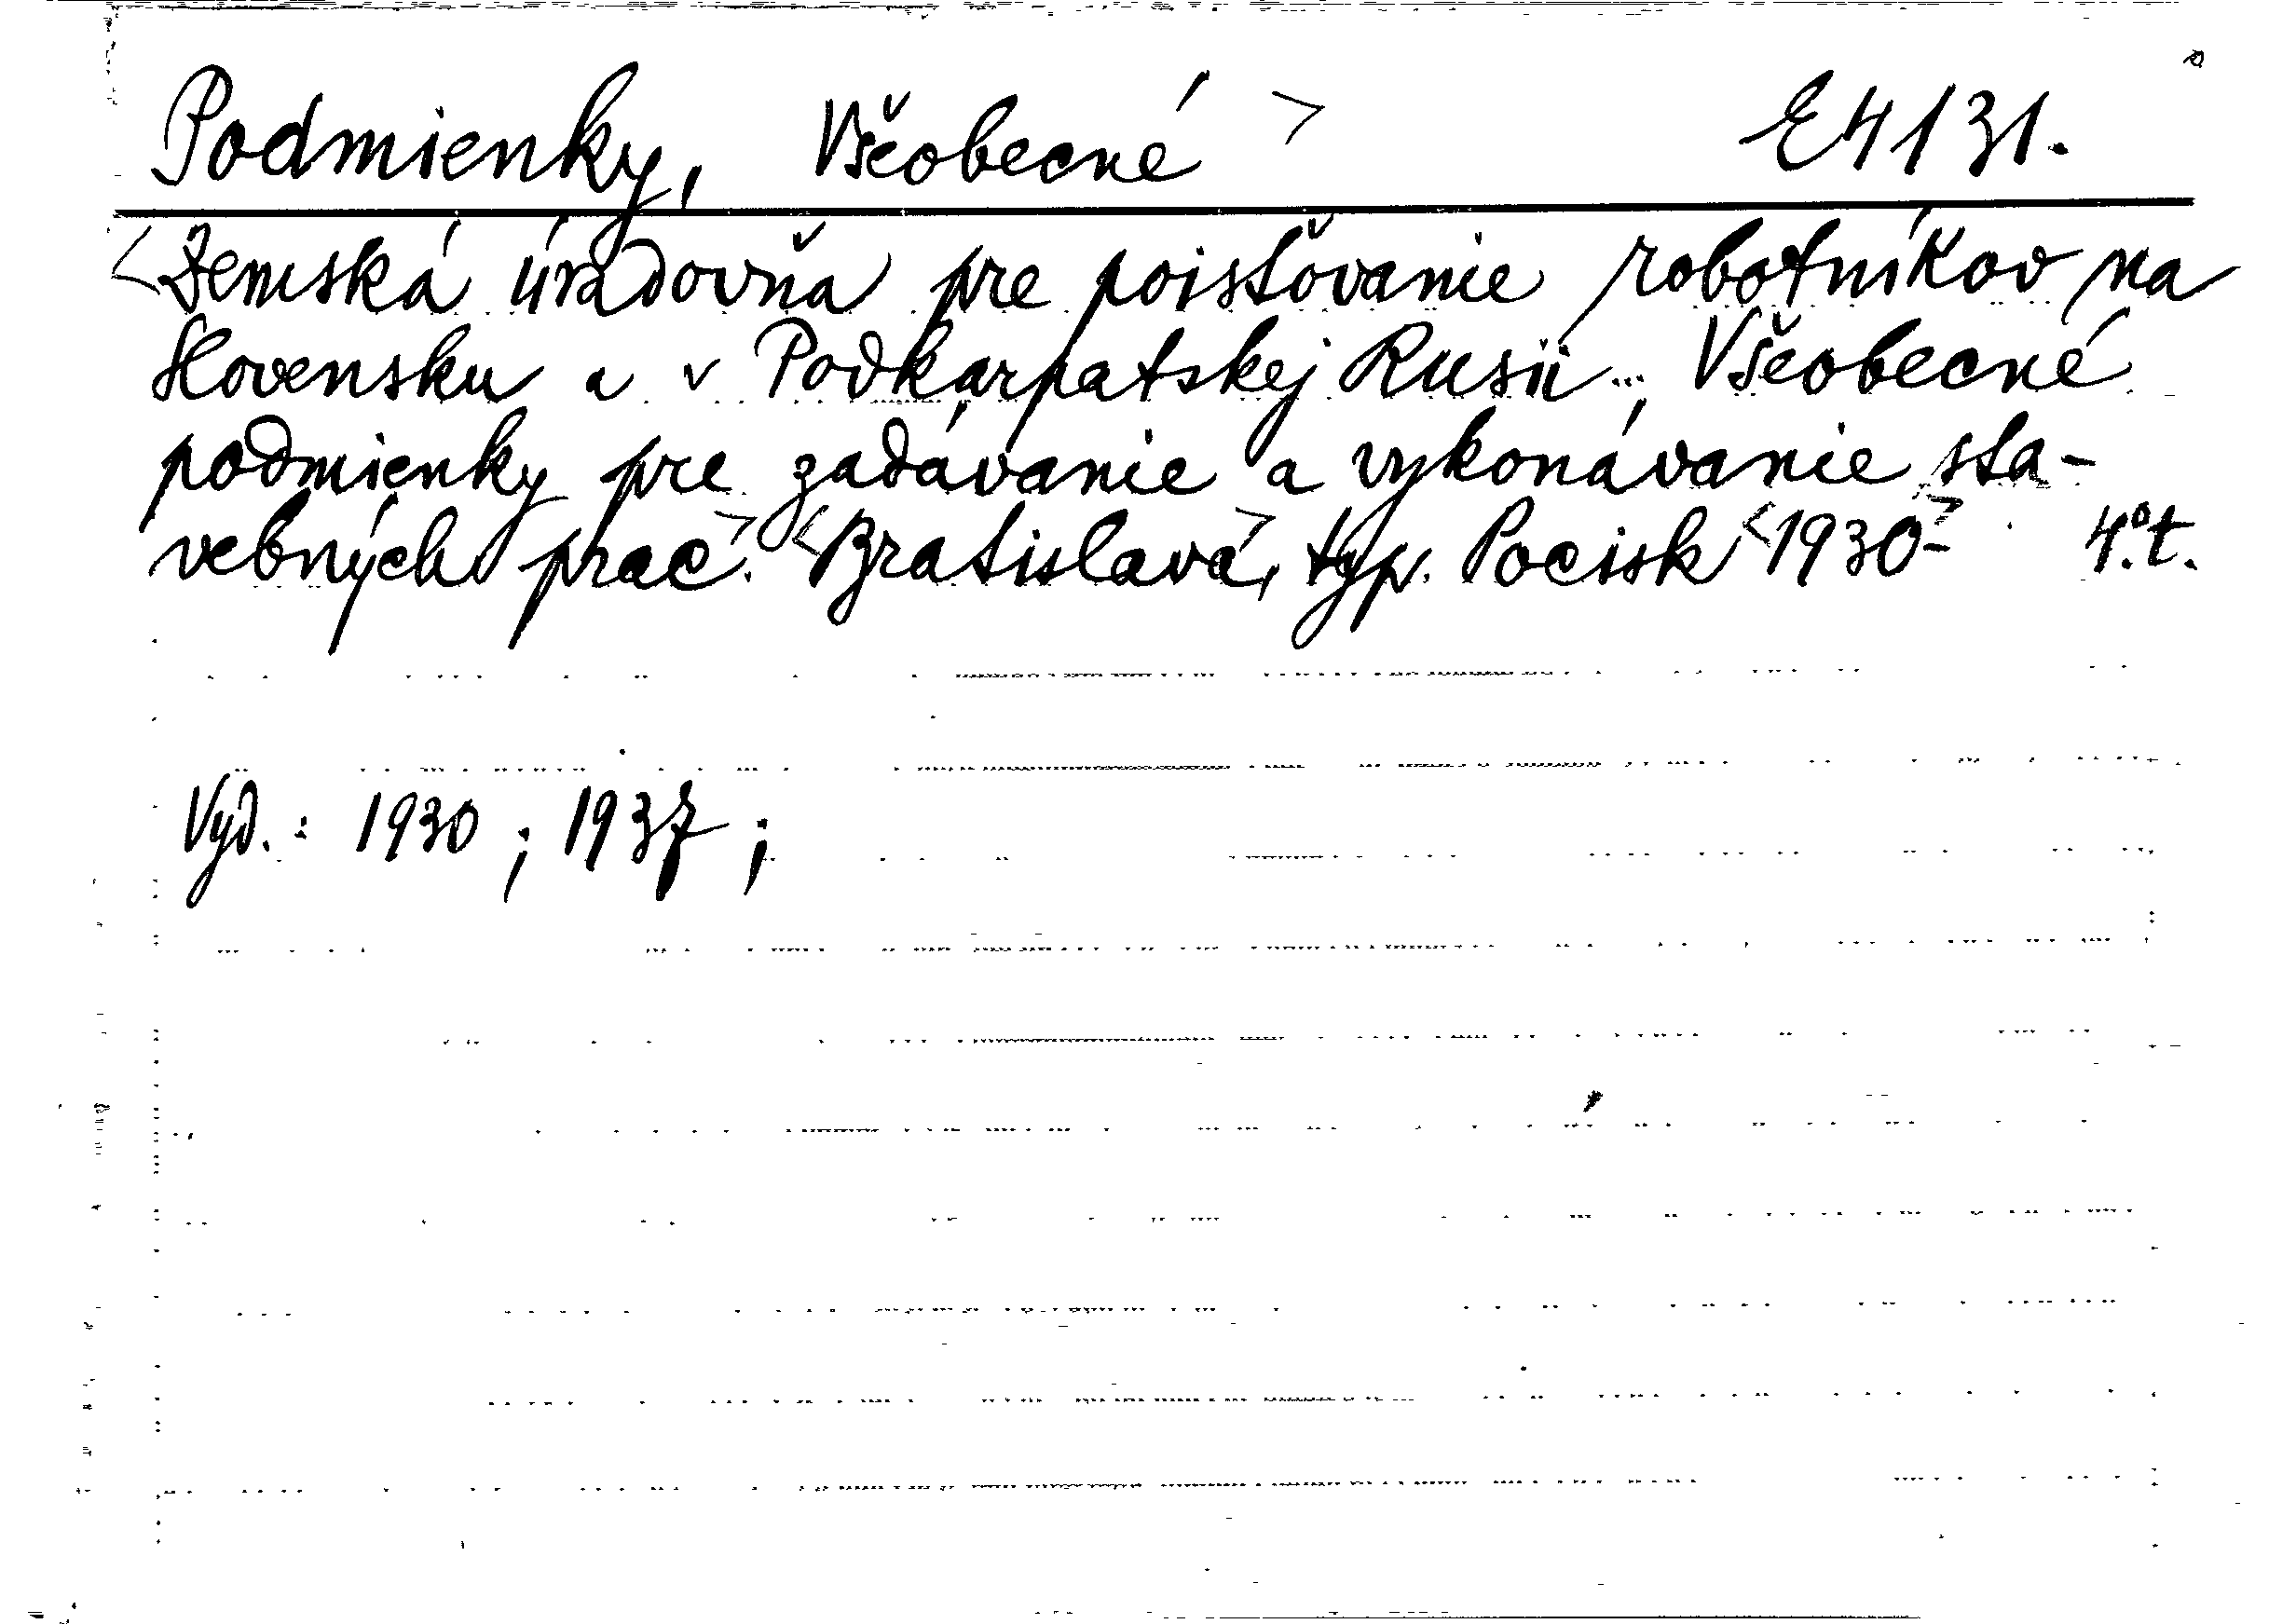 Podmienky, Všeobecné > E4131.
<Zemská úradovňa pre poisťovanie robotníkov na
Slovensku a v Podkarpatskej Rusii... Všeobecné
podmienky pre zadávanie a vykonávanie sta-
vebných prác.> <Bratislava>, typ. Pocisk <1930-> 4.°t.
Vyd.: 1930 ; 1937 ;